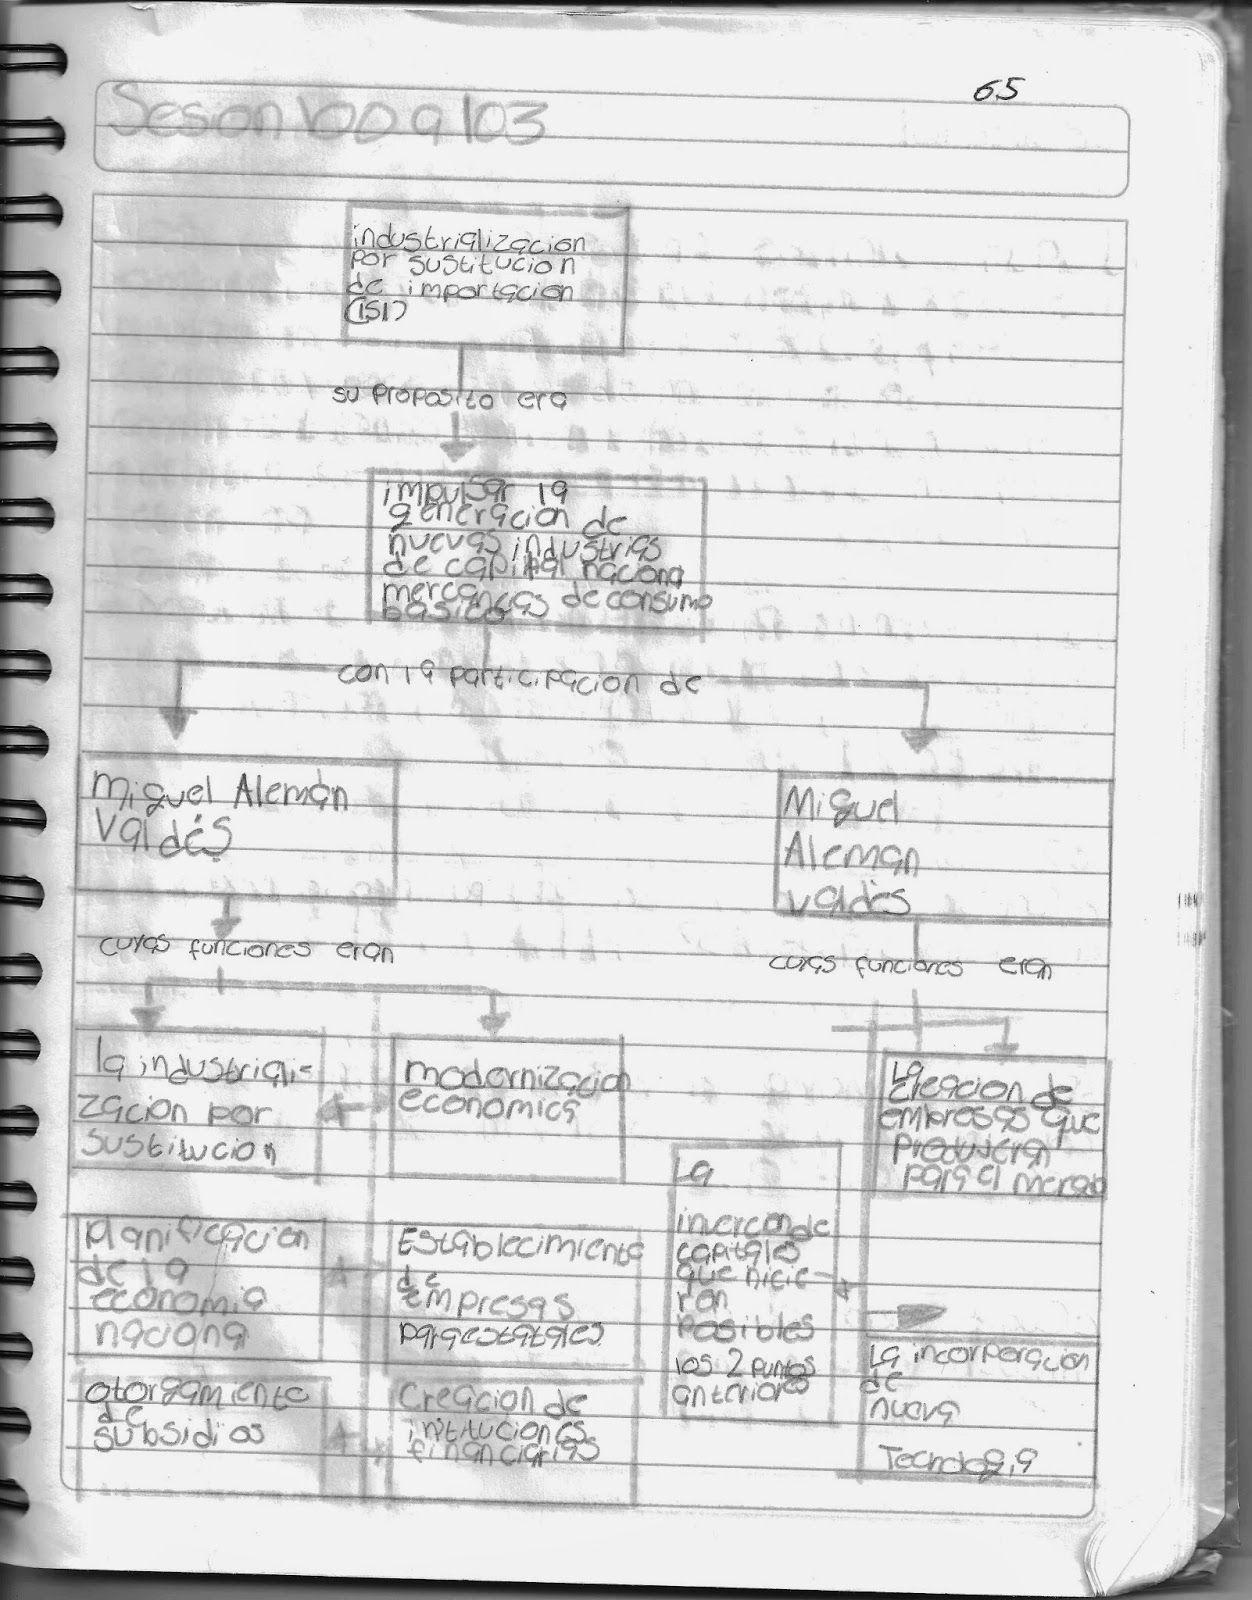 65
Sesion 100 a 103
industrializacion
por sustitucion
de importacion
(ISI)
su proposito era
impulsar la
generacion de
nuevas industrias
de capital naciona
mercancias de consumo
basico
con la participacion de
Miguel Alemán
Valdés
Miguel
Alemán
Valdés
cuyas funciones eran
cuyas funciones eran
la industriali
zacion por
sustitucion
modernizacion
economica
La
creacion de
empresas que
produjeran
para el mercado
Planificacion
de la
economia
naciona
Establecimiento
de
empresas
paraestatales
La
inverconde
capitales
que hicie
ron
posibles
los 2 puntos
anteriores
La incorporacion
de
nueva
Tecnologia
otorgamiento
de
subsidios
Creacion de
instituciones
financiarias